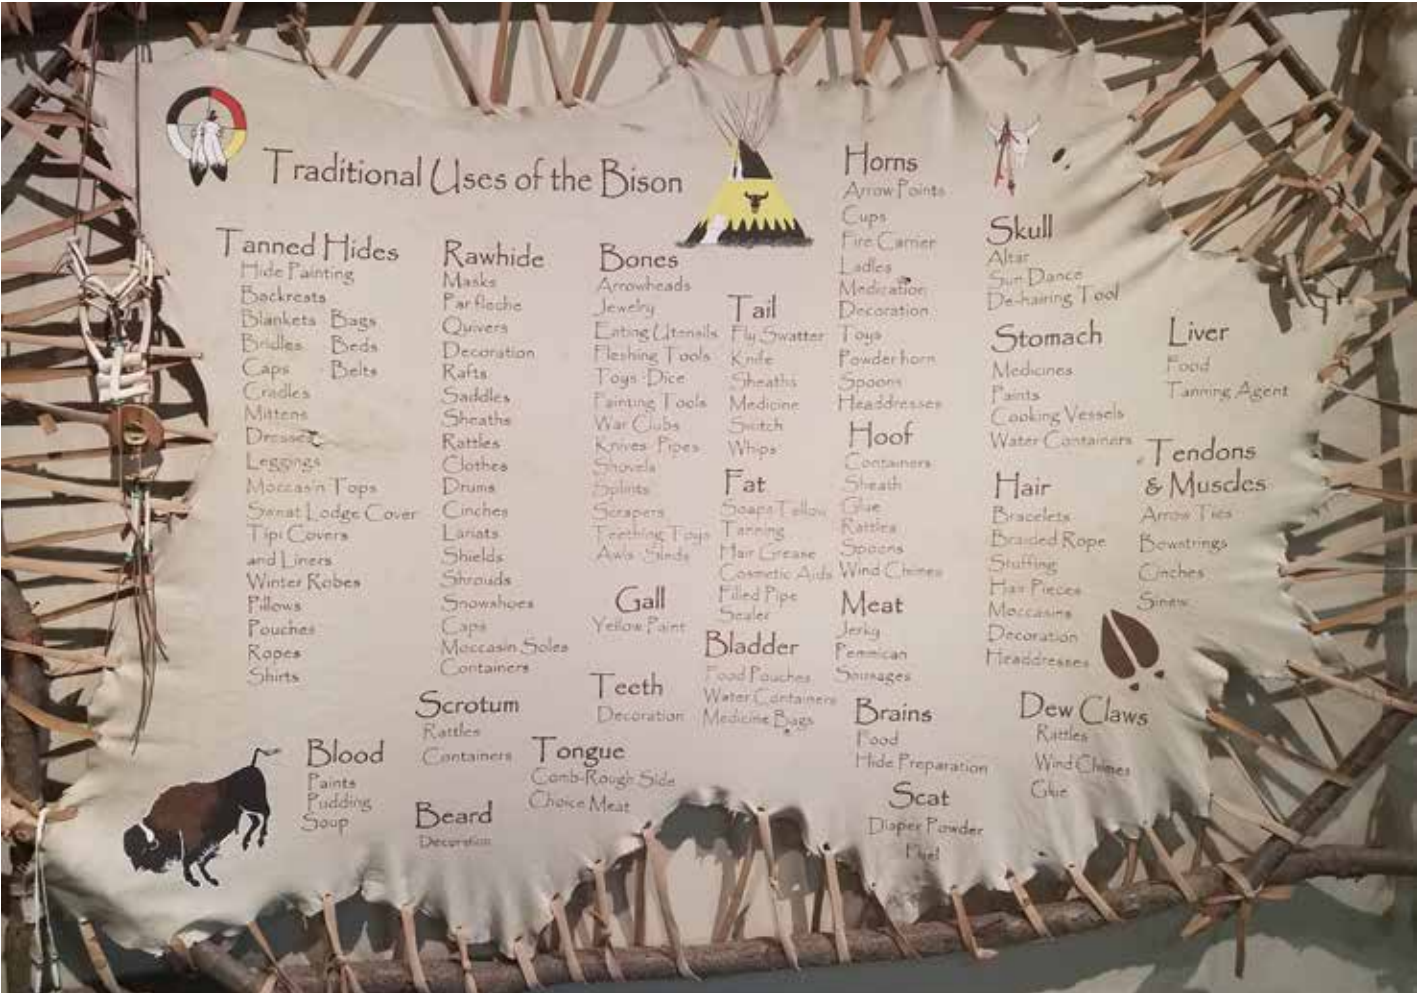 Traditional Uses of the Bison
Tanned Hides
Hide Painting
Backrests
Blankets Bags
Bridles Beds
Caps Belts
Cradles
Mittens
Dresses
Leggings
Moccasin Tops
Sweat Lodge Cover
Tipi Covers
and Liners
Winter Robes
Pillows
Pouches
Ropes
Shirts
Rawhide
Masks
Parfleche
Quivers
Decoration
Rafts
Saddles
Sheaths
Rattles
Clothes
Drums
Cinches
Lariats
Shields
Shrouds
Snowshoes
Caps
Moccasin Soles
Containers
Bones
Arrowheads
Jewelry
Eating Utensils
Fleshing Tools
Toys·Dice
Painting Tools
War Clubs
Knives·Pipes
Shovels
Splints
Scrapers
Teething Toys
Awls·Sleds
Gall
Yellow Paint
Teeth
Decoration
Tail
Fly Swatter
Knife
Sheaths
Medicine
Switch
Whips
Fat
Soaps Tallow
Tanning
Hair Grease
Cosmetic Aids
Filled Pipe
Sealer
Bladder
Food Pouches
Water Containers
Medicine Bags
Horns
Arrow Points
Cups
Fire Carrier
Ladles
Medication
Decoration
Toys
Powderhorn
Spoons
Headdresses
Hoof
Containers
Sheath
Glue
Rattles
Spoons
Wind Chimes
Meat
Jerky
Pemmican
Sausages
Brains
Food
Hide Preparation
Scat
Diaper Powder
Fuel
Skull
Altar
Sun Dance
De-hairing Tool
Stomach
Medicines
Paints
Cooking Vessels
Water Containers
Hair
Bracelets
Braided Rope
Stuffing
Hair Pieces
Moccasins
Decoration
Headdresses
Liver
Food
Tanning Agent
Tendons
& Muscles
Arrow Ties
Bowstrings
Cinches
Sinew
Dew Claws
Rattles
Wind Chimes
Glue
Scrotum
Rattles
Containers
Tongue
Comb-Rough Side
Choice Meat
Blood
Paints
Pudding
Soup
Beard
Decoration